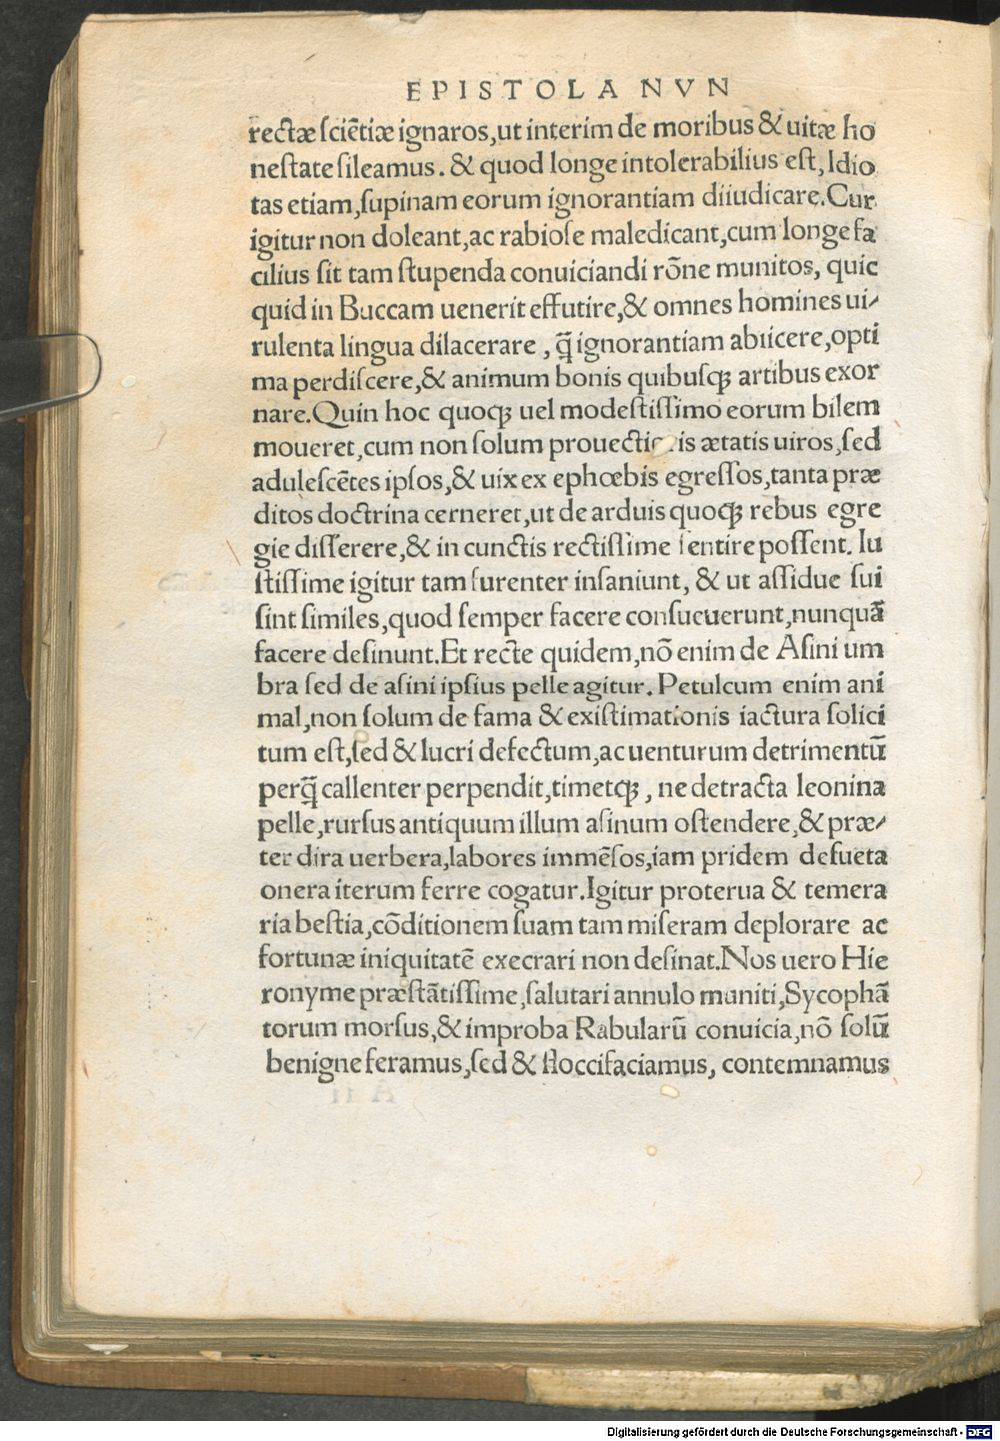 EPISTOLA NVN
rectæ ſciẽtiæ ignaros,ut interim de moribus & uitæ ho
neſtate ſileamus. & quod longe intolerabilius eſt, Idio
tas etiam,ſupinam eorum ignorantiam diiudicare.Cur
igitur non doleant,ac rabioſe maledicant,cum longe fa
cilius ſit tam ſtupenda conuiciandi rõne munitos, quic
quid in Buccam uenerit effutire,& omnes homines ui⸗
rulenta lingua dilacerare , q̃ ignorantiam abiicere,opti
ma perdiſcere,& animum bonis quibuſqꝫ artibus exor
nare.Quin hoc quoqꝫ uel modeſtiſſimo eorum bilem
moueret,cum non ſolum ætatis uiros,ſed
aduleſcẽtes ipſos,& uix ex ephœbis egreſſos,tanta præ
ditos doctrina cerneret,ut de arduis quoqꝫ rebus egre
gie diſſerere,& in cunctis rectiſſime ſentire poſſent. Iu
ſtiſſime igitur tam furenter inſaniunt, & ut aſſidue ſui
ſint similes,quod ſemper facere conſueuerunt,nunquã
facere deſinunt.Et recte quidem,nõ enim de Aſini um
bra ſed de aſini ipſius pelle agitur. Petulcum enim ani
mal,non ſolum de fama & exiſtimationis iactura ſolici
tum eſt,ſed & lucri defectum,ac uenturum detrimentũ
perq̃ callenter perpendit,timetqꝫ , ne detracta leonina
pelle,rurſus antiquum illum aſinum oſtendere,& præ⸗
ter dira uerbera,labores immẽſos,iam pridem deſueta
onera iterum ferre cogatur.Igitur proterua & temera
ria beſtia,cõditionem ſuam tam miſeram deplorare ac
fortunæ iniquitatẽ execrari non deſinat.Nos uero Hie
ronyme præſtãtiſſime,ſalutari annulo muniti,Sycophã
torum morſus,& improba Rabularũ conuicia,nõ ſolũ
benigne feramus,ſed & floccifaciamus, contemnamus
Digitalisierung gefördert durch die Deutsche Forschungsgemeinschaft - DFG